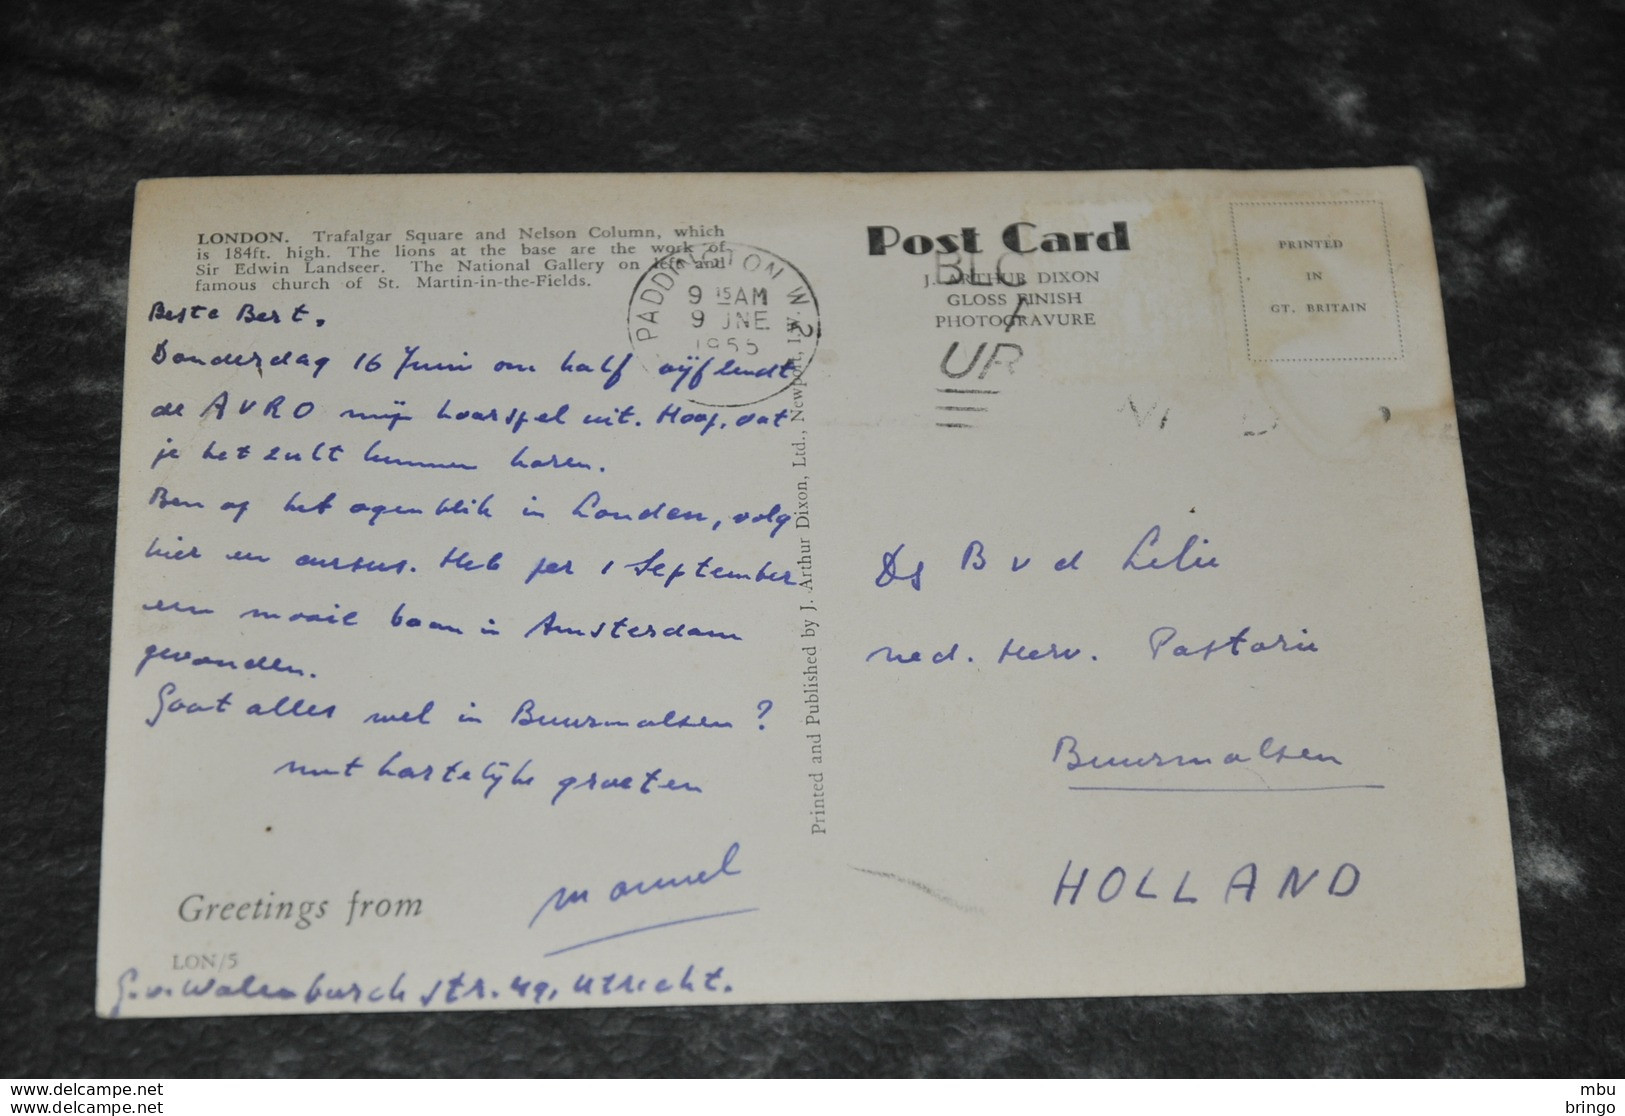 LONDON. Trafalgar Square and Nelson Column, which
is 184ft. high. The lions at the base are the work of
Sir Edwin Landseer. The National Gallery on left and
famous church of St. Martin-in-the-Fields.
Beste Bert.
Donderdag 16 Juni om half vijf zendt
de AVRO mijn hoorspel uit. Hoop, dat
je het zult kunnen horen.
Ben op het ogenblik in Londen, volg
hier een cursus. Heb per 1 September
een mooie baan in Amsterdam
gevonden.
Gaat alles wel in Buurmalsen?
met hartelijke groeten
Greetings from
LON/5
str. 49, Utrecht.
PADDINGTON W.2
9 15AM
9 JNE
1955
Printed and Published by J. Arthur Dixon, Ltd., Newport, I.W.
Post Card
J. ARTHUR DIXON
GLOSS FINISH
PHOTOGRAVURE
PRINTED
IN
GT. BRITAIN
Ds B v d Lelie
ned. Herv. Pastorie
Buurmalsen
HOLLAND
www.delcampe.net
www.delcampe.net
mbu
bringo